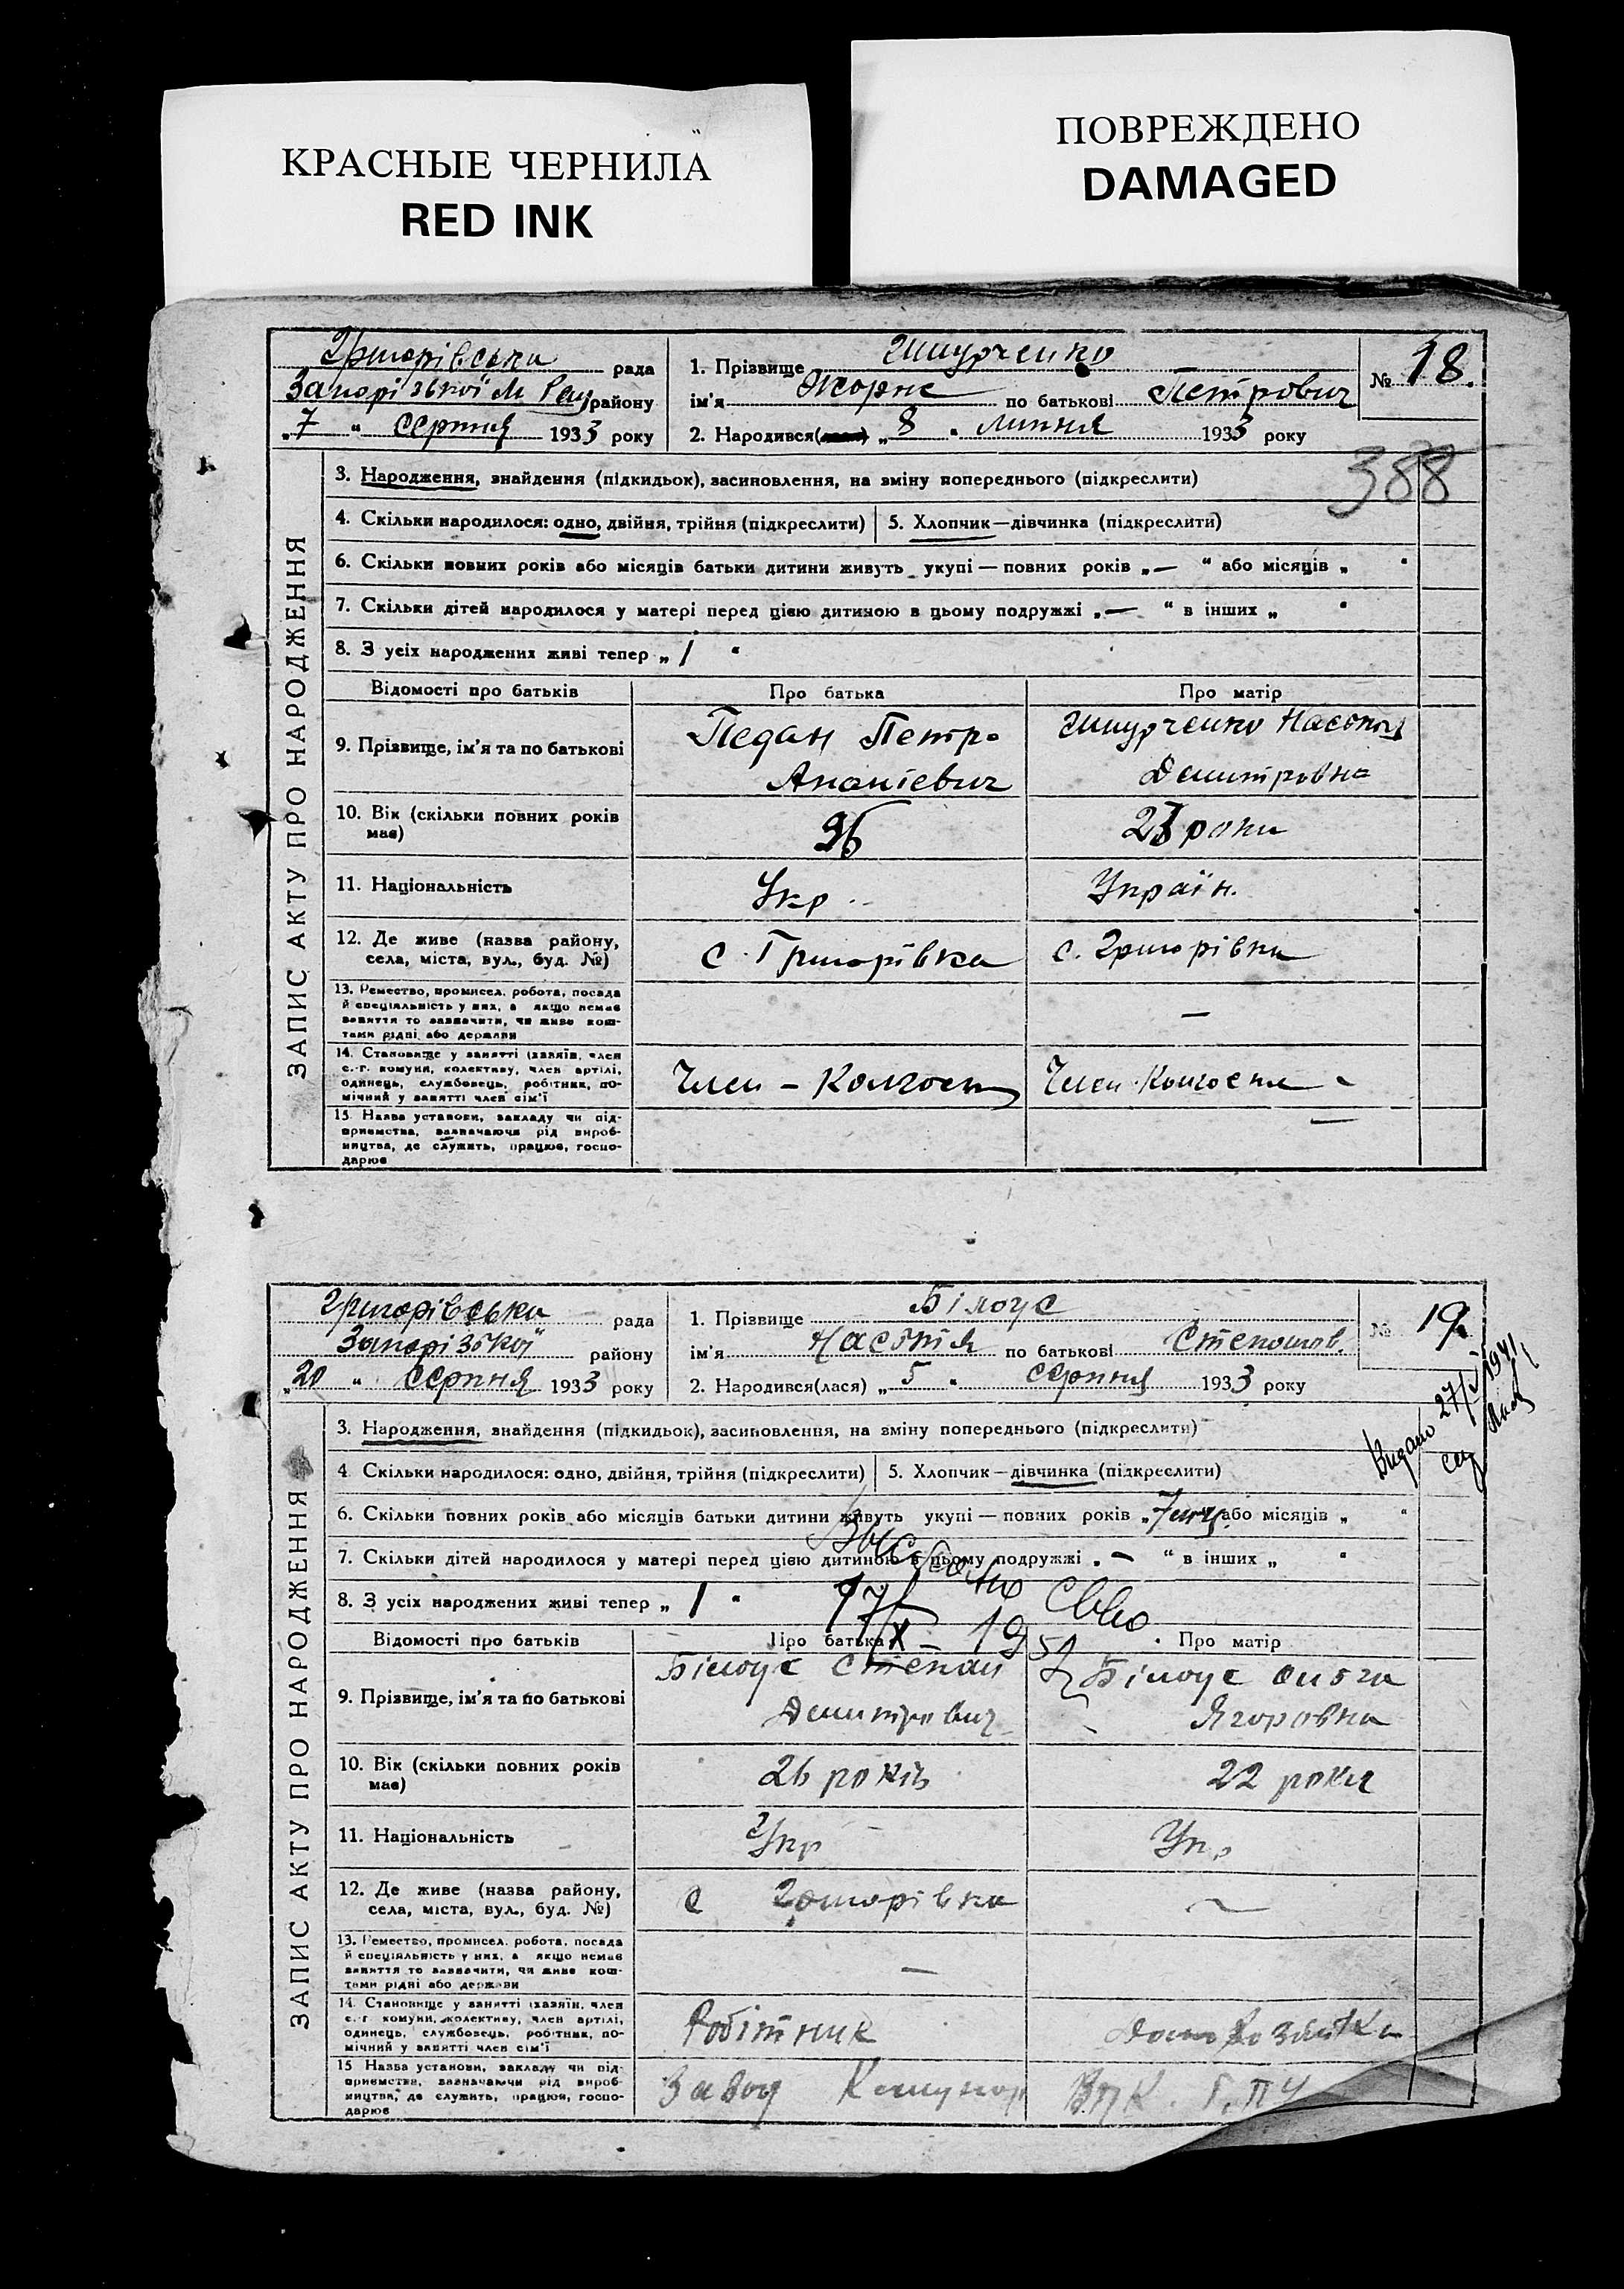 КРАСНЫЕ ЧЕРНИЛА
RED INK
ПОВРЕЖДЕНО
DAMAGED
Григорівська рада
Запорізької М Рай району
„7“ Серпня 1933 року
1. Прізвище
ім'я Жорж по батькові Петрович
2. Народився(лася) „8“ Липня 1933 року
№ 18.
388
ЗАПИС АКТУ ПРО НАРОДЖЕННЯ
3. Народження, знайдення (підкидьок), засиновлення, на зміну попереднього (підкреслити)
4. Скільки народилося: одно, двійня, трійня (підкреслити)
5. Хлопчик—дівчинка (підкреслити)
6. Скільки повних років або місяців батьки дитини живуть укупі — повних років „—“ або місяців „ “
7. Скільки дітей народилося у матері перед цією дитиною в цьому подружжі „—“ в інших „ “
8. З усіх народжених живі тепер „1“
Відомості про батьків
Про батька
Про матір
9. Прізвище, ім'я та по батькові
Педан Петро
Ананієвич
Дмитровна
10. Вік (скільки повних років
має)
роки
11. Національність
Укр.
Україн.
12. Де живе (назва району,
села, міста, вул., буд. №)
с. Григорівка
с. Григорівка
13. Ремество, промисел, робота, посада
й спеціяльність у них, а якщо немає
заняття то зазначити, чи живе кош-
тами рідні або держави
—
14. Становище у занятті (хазяїн, член
с.-г. комуни, колективу, член артілі,
одинець, службовець, робітник, по-
мічний у занятті член сім'ї
Член – Колгосп
Член Колгоспа
15. Назва установи, закладу чи під-
приємства, зазначаючи рід вироб-
ництва, де служить, працює, госпо-
дарює
—
Григорівська рада
Запорізької району
„20“ Серпня 1933 року
1. Прізвище Білоус
ім'я Настя по батькові Степанов.
2. Народився(лася) „5“ Серпня 1933 року
№ 19
Видано 27/V 1941
ЗАПИС АКТУ ПРО НАРОДЖЕННЯ
3. Народження, знайдення (підкидьок), засиновлення, на зміну попереднього (підкреслити)
4. Скільки народилося: одно, двійня, трійня (підкреслити)
5. Хлопчик—дівчинка (підкреслити)
6. Скільки повних років або місяців батьки дитини живуть укупі — повних років „7 “ або місяців „ “
7. Скільки дітей народилося у матері перед цією дитиною в цьому подружжі „—“ в інших „ “
8. З усіх народжених живі тепер „1“
Выслано св-во
17/X – 1951
Відомості про батьків
Про батька
Про матір
9. Прізвище, ім'я та по батькові
Білоус Степан
Дмитрович
Білоус Ольга
Ягоровна
10. Вік (скільки повних років
має)
26 років
22 роки
11. Національність
Укр
Укр
12. Де живе (назва району,
села, міста, вул., буд. №)
с Григорівка
13. Ремество, промисел, робота, посада
й спеціяльність у них, а якщо немає
заняття то зазначити, чи живе кош-
тами рідні або держави
—
14. Становище у занятті (хазяїн, член
с.-г. комуни, колективу, член артілі,
одинець, службовець, робітник, по-
мічний у занятті член сім'ї
Робітник
Домохозяйка
15. Назва установи, закладу чи під-
приємства, зазначаючи рід вироб-
ництва, де служить, працює, госпо-
дарює
Завод Комунар